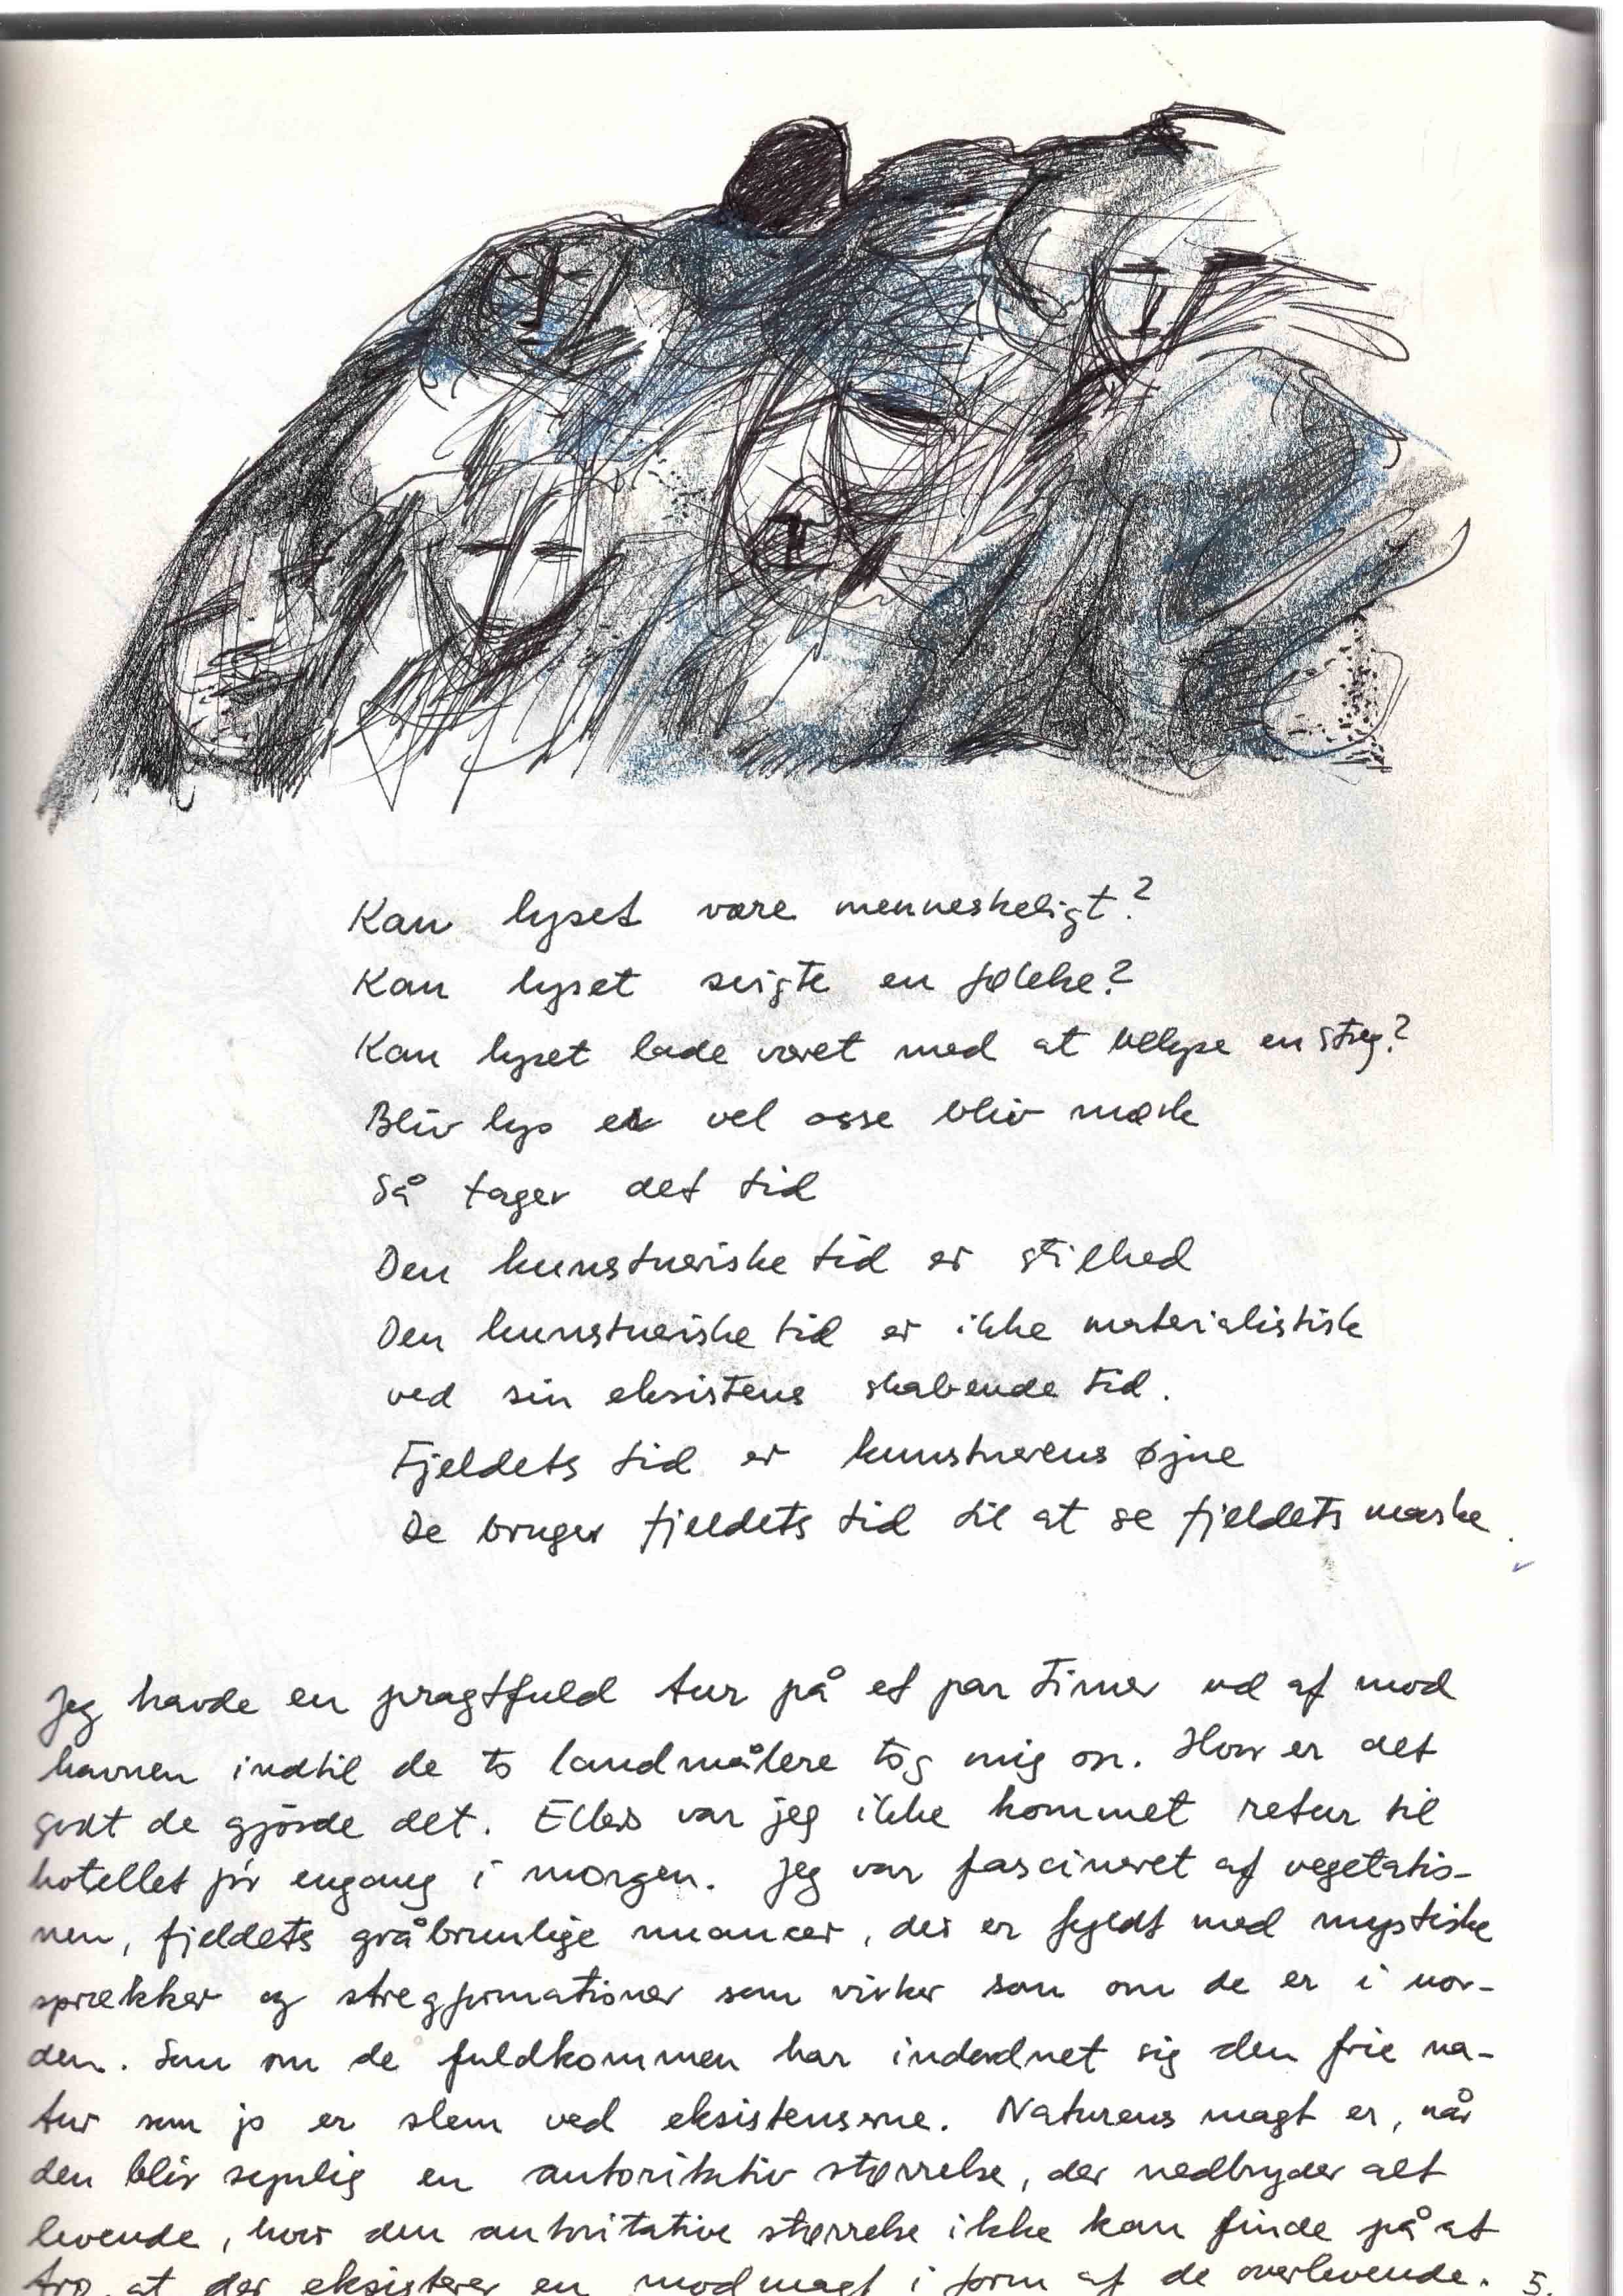 Kan lyset være menneskeligt?
Kan lyset svigte en følelse?
Kan lyset lade været med at belyse en streg?
Bliv lys vel osse bliv mørk
Så tager det tid
Den kunstneriske tid er stilhed
Den kunstneriske tid er ikke materialistisk
ved sin eksistens skabende tid.
Fjeldets tid er kunstnerens øjne
De bruger fjeldets tid til at se fjeldets maske.
Jeg havde en pragtfuld tur på et par timer ud af mod
havnen indtil de to landmålere tog mig op. Hvor er det
godt de gjorde det. Ellers var jeg ikke kommet retur til
hotellet før engang i morgen. Jeg var fascineret af vegetatio-
nen, fjeldets gråbrunlige nuancer, der er fyldt med mystiske
sprækker og stregformationer som virker som om de er i uor-
den. Som om de fuldkommen har indordnet sig den frie na-
tur som jo er slem ved eksistenserne. Naturens magt er, når
den bliv synlig en autoritativ størrelse, der nedbryder alt
levende, hvor den autoritative størrelse ikke kan finde på at
tro, at der eksisterer en modmagt i form af de overlevende. 5.